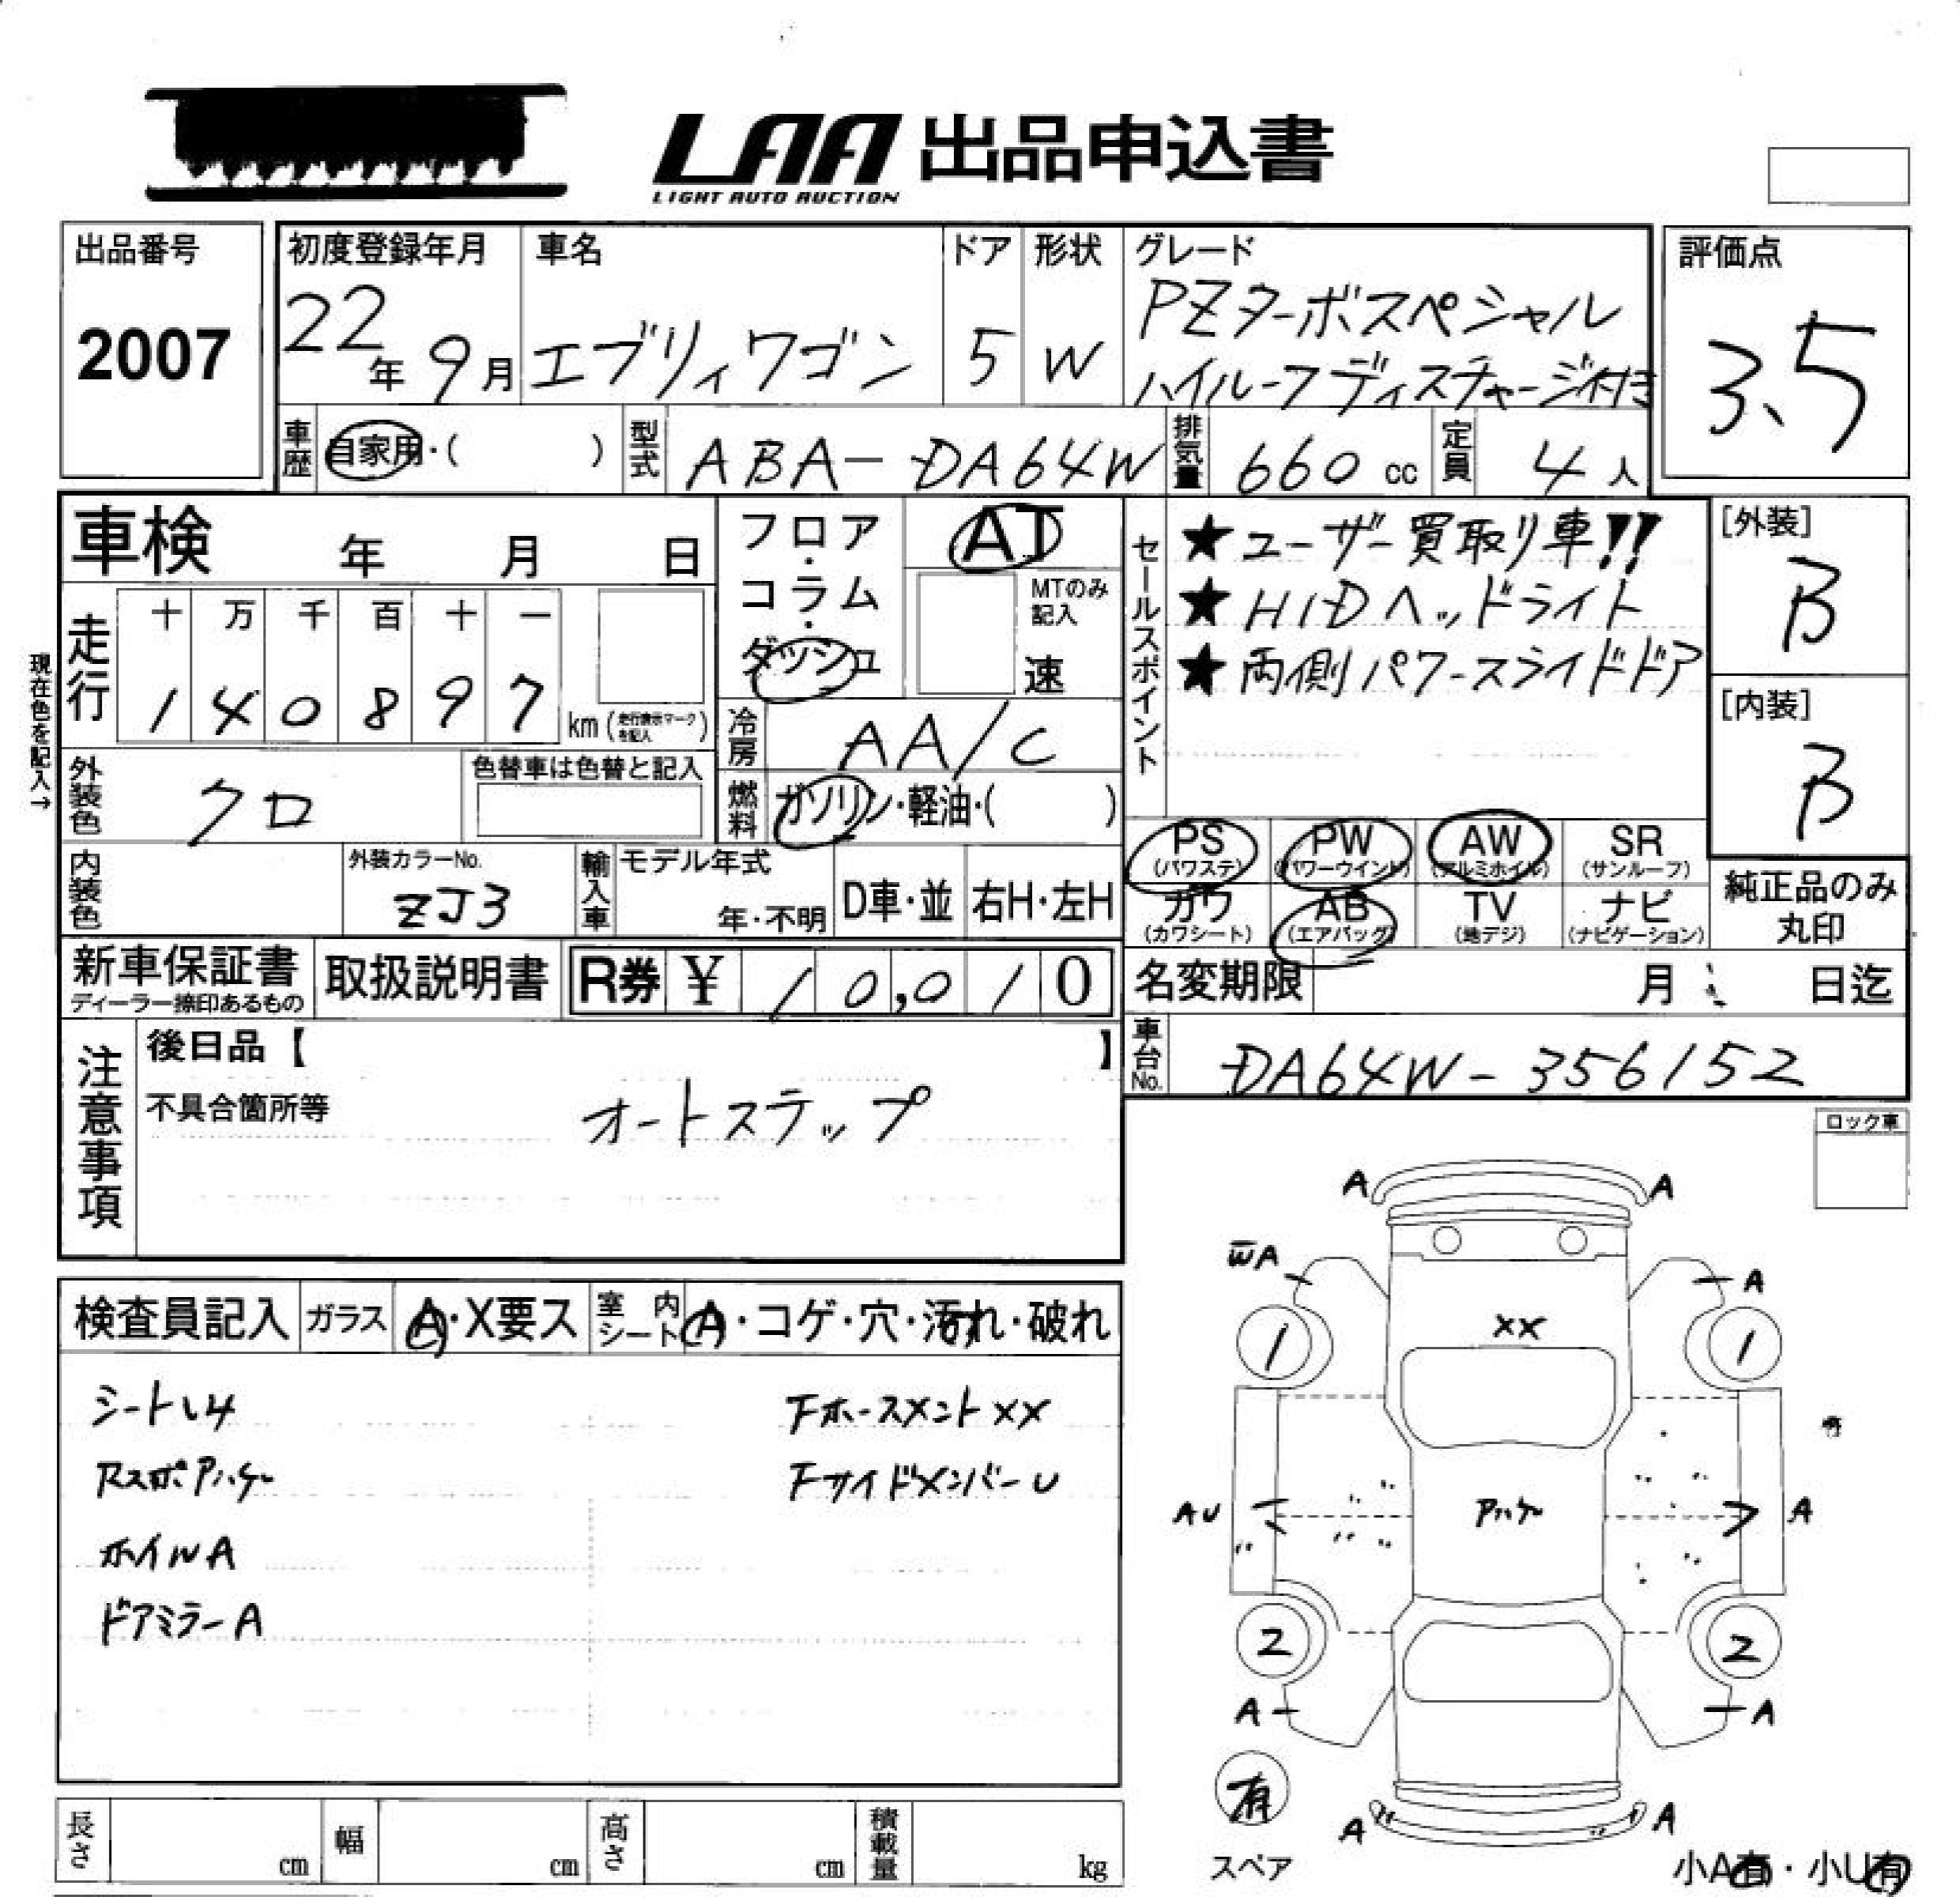 LAA 出品申込書
LIGHT AUTO AUCTION
出品番号
2007
初度登録年月
22年 9月
車名
エブリィワゴン
ドア
5
形状
W
グレード
PZターボスペシャル
ハイルーフディスチャージ付き
評価点
3.5
車歴 自家用・( )
型式 ABA-DA64W
排気量 660 cc
定員 4人
車検 年 月 日
フロア・コラム・ダッシュ
AT
MTのみ記入
速
セールスポイント
★ユーザー買取り車!!
★HIDヘッドライト
★両側パワースライドドア
[外装]
B
[内装]
B
現在色を記入→
走行
十 万 千 百 十 一
1 4 0 8 9 7 km
冷房 AA/C
外装色 クロ
色替車は色替と記入
燃料 ガソリン・軽油・( )
PS PW AW SR
(パワステ) (パワーウインド) (アルミホイル) (サンルーフ)
カワ AB TV ナビ
(カワシート) (エアバッグ) (地デジ) (ナビゲーション)
純正品のみ
丸印
内装色
外装カラーNo.
ZJ3
輸入車
モデル年式
年・不明
D車・並
右H・左H
新車保証書
ディーラー捺印あるもの
取扱説明書
R券 ¥ 10,010
名変期限 月 日迄
車台No. DA64W-356152
注意事項
後日品【 】
不具合箇所等
オートステップ
ロック車
検査員記入 ガラス A・X要ス 室内シート A・コゲ・穴・汚れ・破れ
シートL4
Fホースメントxx
Rスポアハゲ
FサイドメンバーU
ホイルA
ドアミラーA
A A
WA A
xx
1 1
AU アハゲ A
2 2
A A
有
A A
スペア
小A有・小U有
長さ cm 幅 cm 高さ cm 積載量 kg